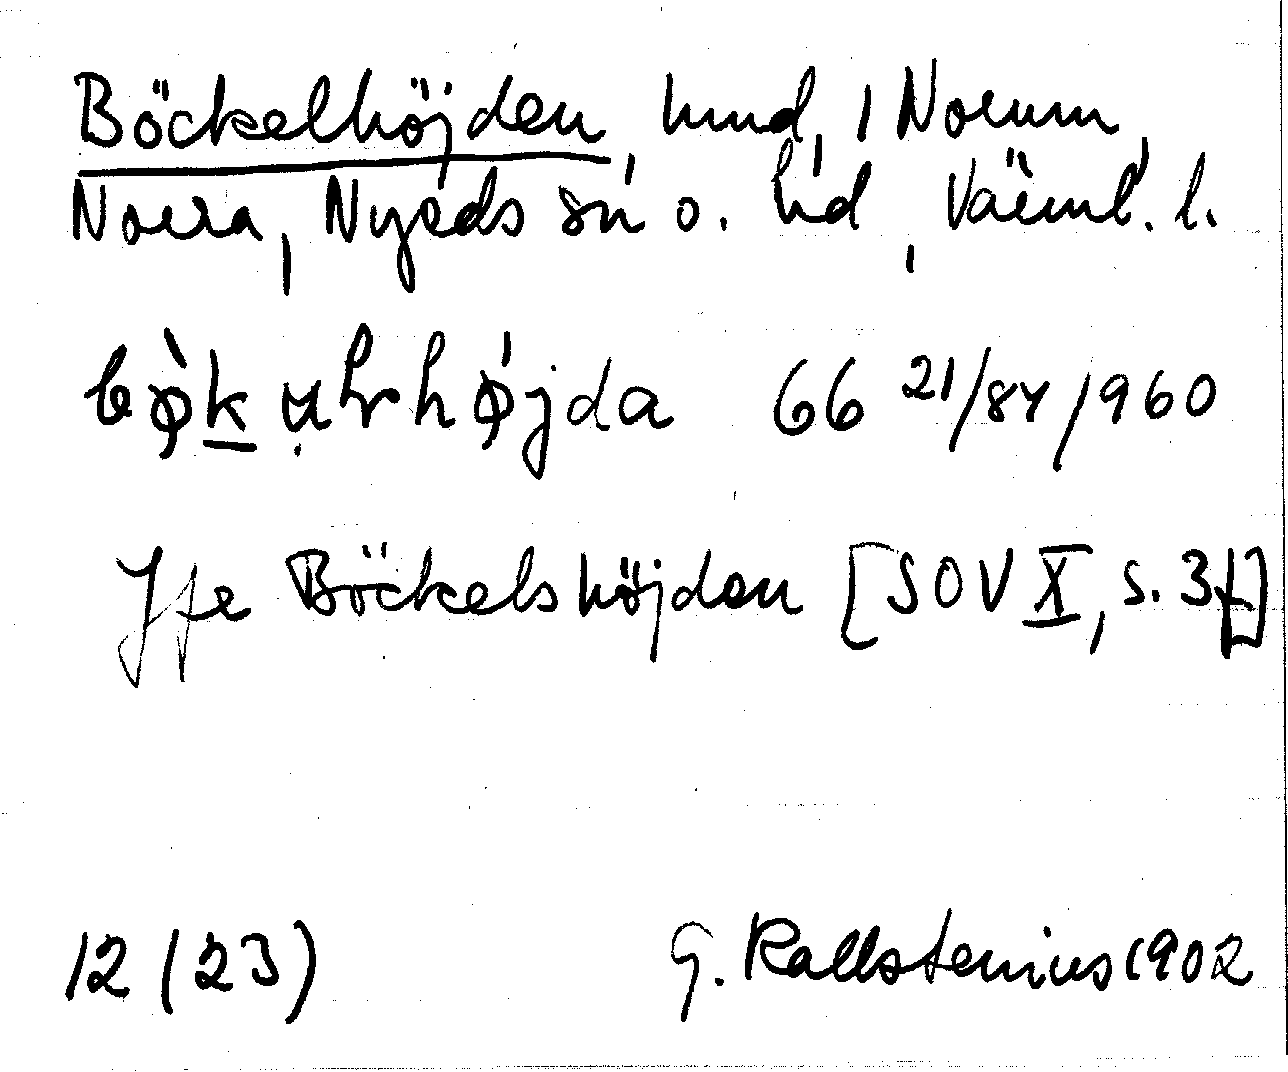 Böckelhöjden, hmd, i Norum,
Norra, Nyeds sn o. hd, Värml. l.
66 21/84/960
Jfe Böckelshöjden [SOV X, s. 3f]
12 (23)
G. Kallstenius 1902